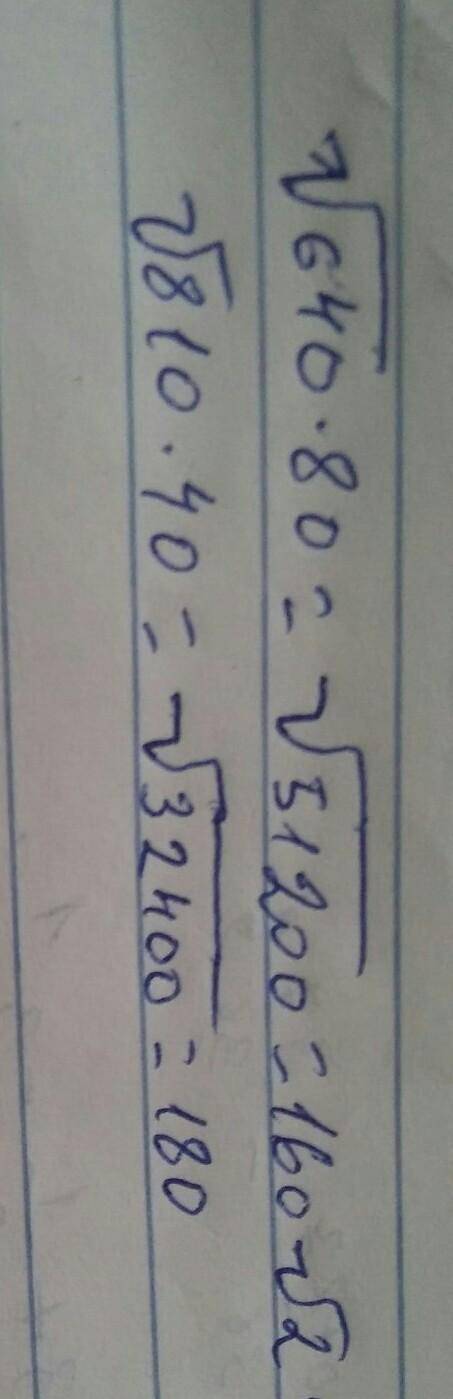 √640·80 = √51200 = 160√2
√810·40 = √32400 = 180